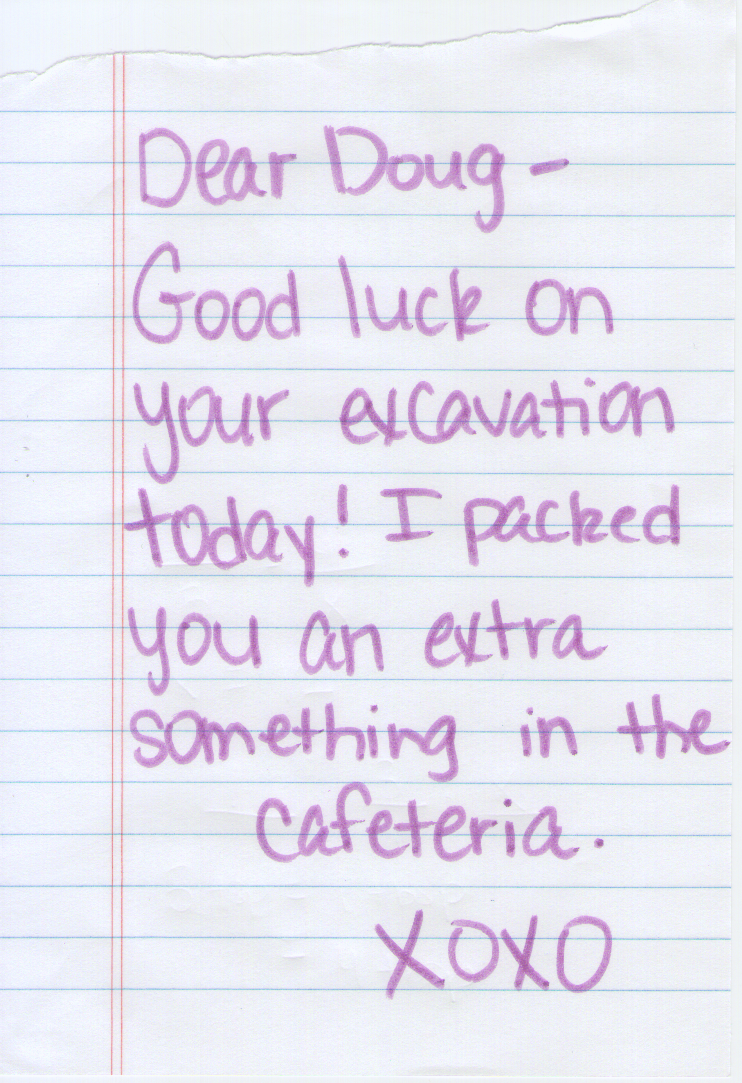 Dear Doug -
Good luck on
your excavation
today! I packed
you an extra
something in the
cafeteria.
XOXO